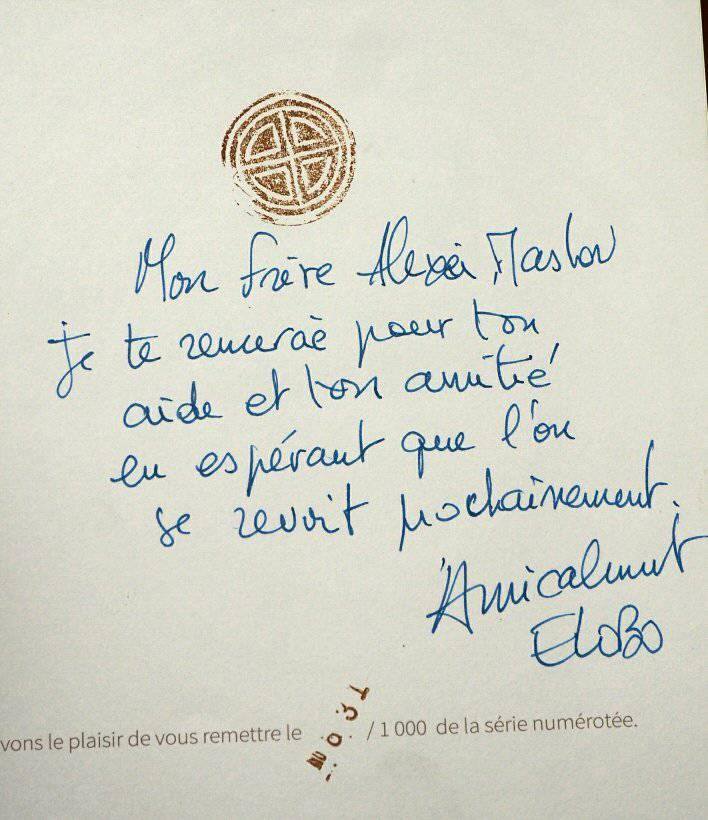 Mon frère Alexei Maslov
je te remercie pour ton
aide et ton amitié
en espérant que l'on
se revoit prochainement.
Amicalement
ELOBO
vons le plaisir de vous remettre le / 1 000 de la série numérotée.